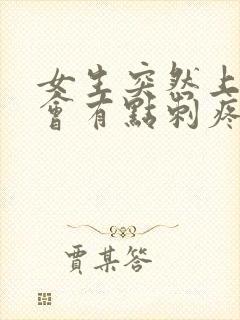 女生突然上
會有點刺疼
賈某答